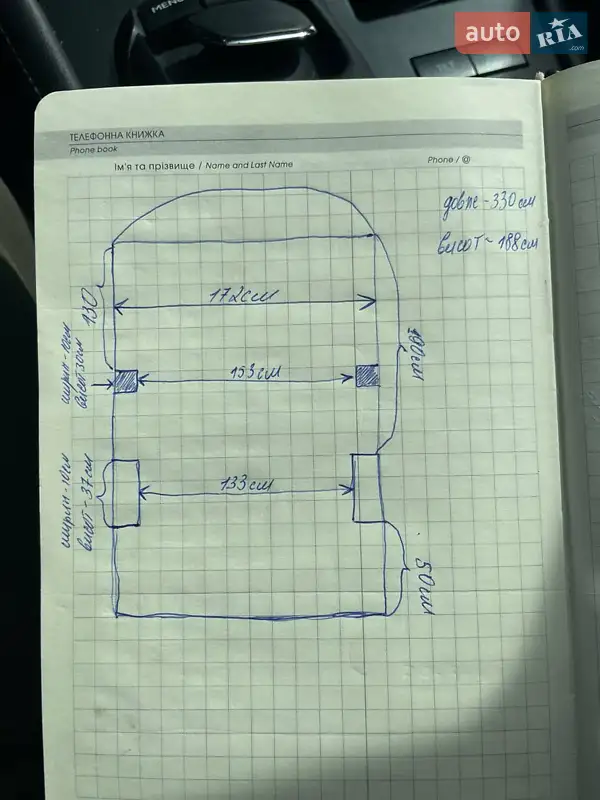 MENU
auto RIA .com
ТЕЛЕФОННА КНИЖКА
Phone book
Ім'я та прізвище / Name and Last Name
Phone / @
довж - 330 см
висот - 188 см
172 см
130
190 см
153 см
висот 30 см
133 см
висот - 37 см
50 см